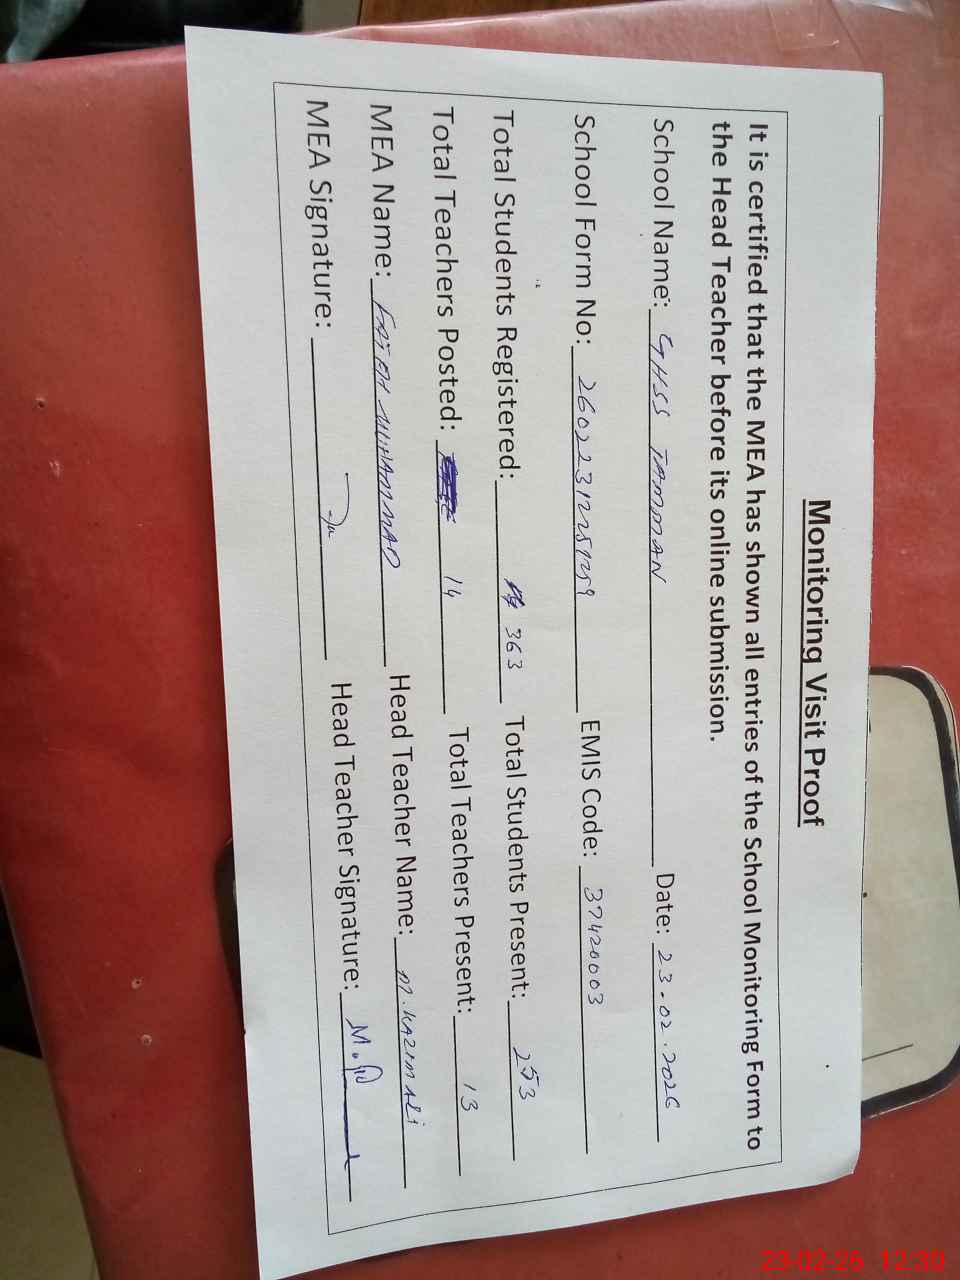 Monitoring Visit Proof
It is certified that the MEA has shown all entries of the School Monitoring Form to
the Head Teacher before its online submission.
School Name: GHSS TAMMAN Date: 23.02.2026
School Form No: EMIS Code: 37420003
Total Students Registered: 363 Total Students Present: 253
Total Teachers Posted: 14 Total Teachers Present: 13
MEA Name: FATEH MUHAMMAD Head Teacher Name: M. KAZIM ALI
MEA Signature: Head Teacher Signature:
23-02-26 12:30